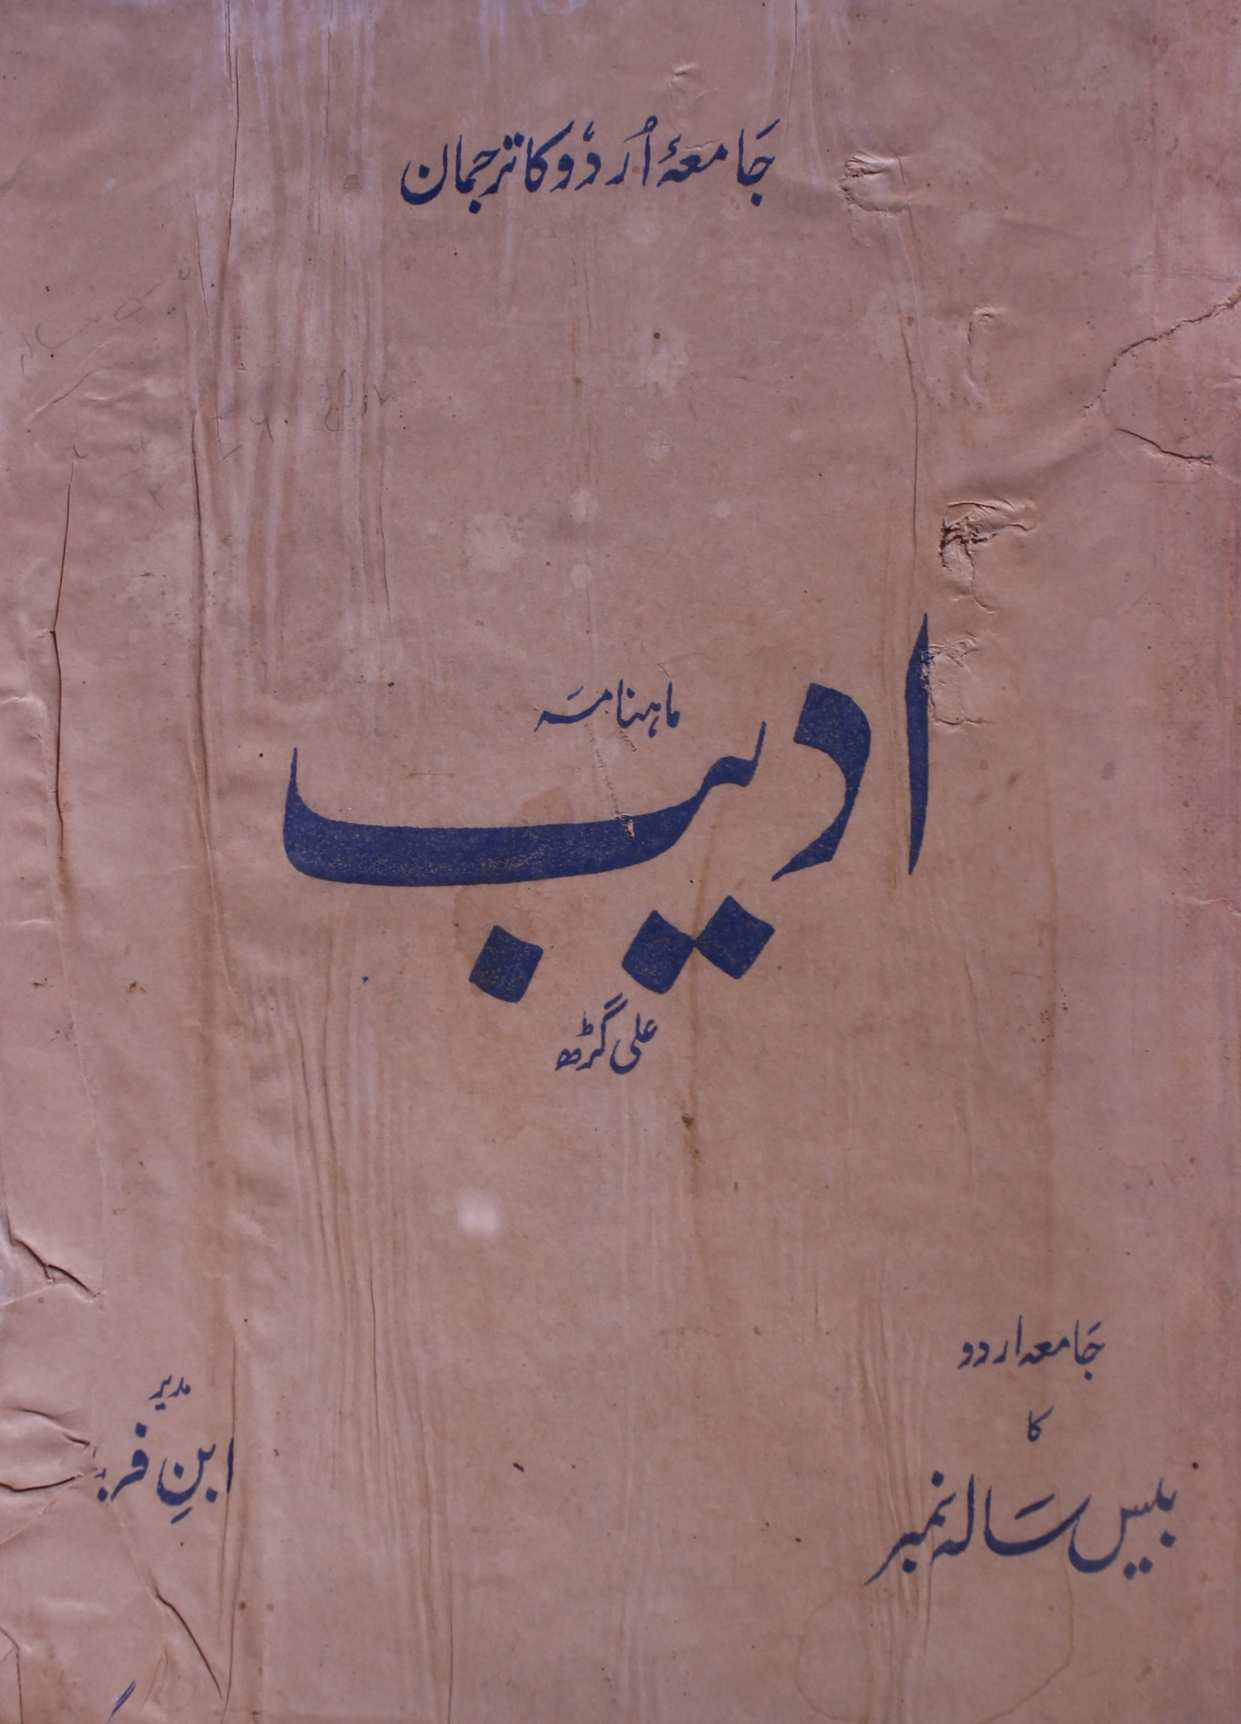 جامعۂ اُردو کا ترجمان
ماہنامہ
ادیب
علی گڑھ
جامعہ اردو
کا
بیس سالہ نمبر
مدیر
ابنِ فر